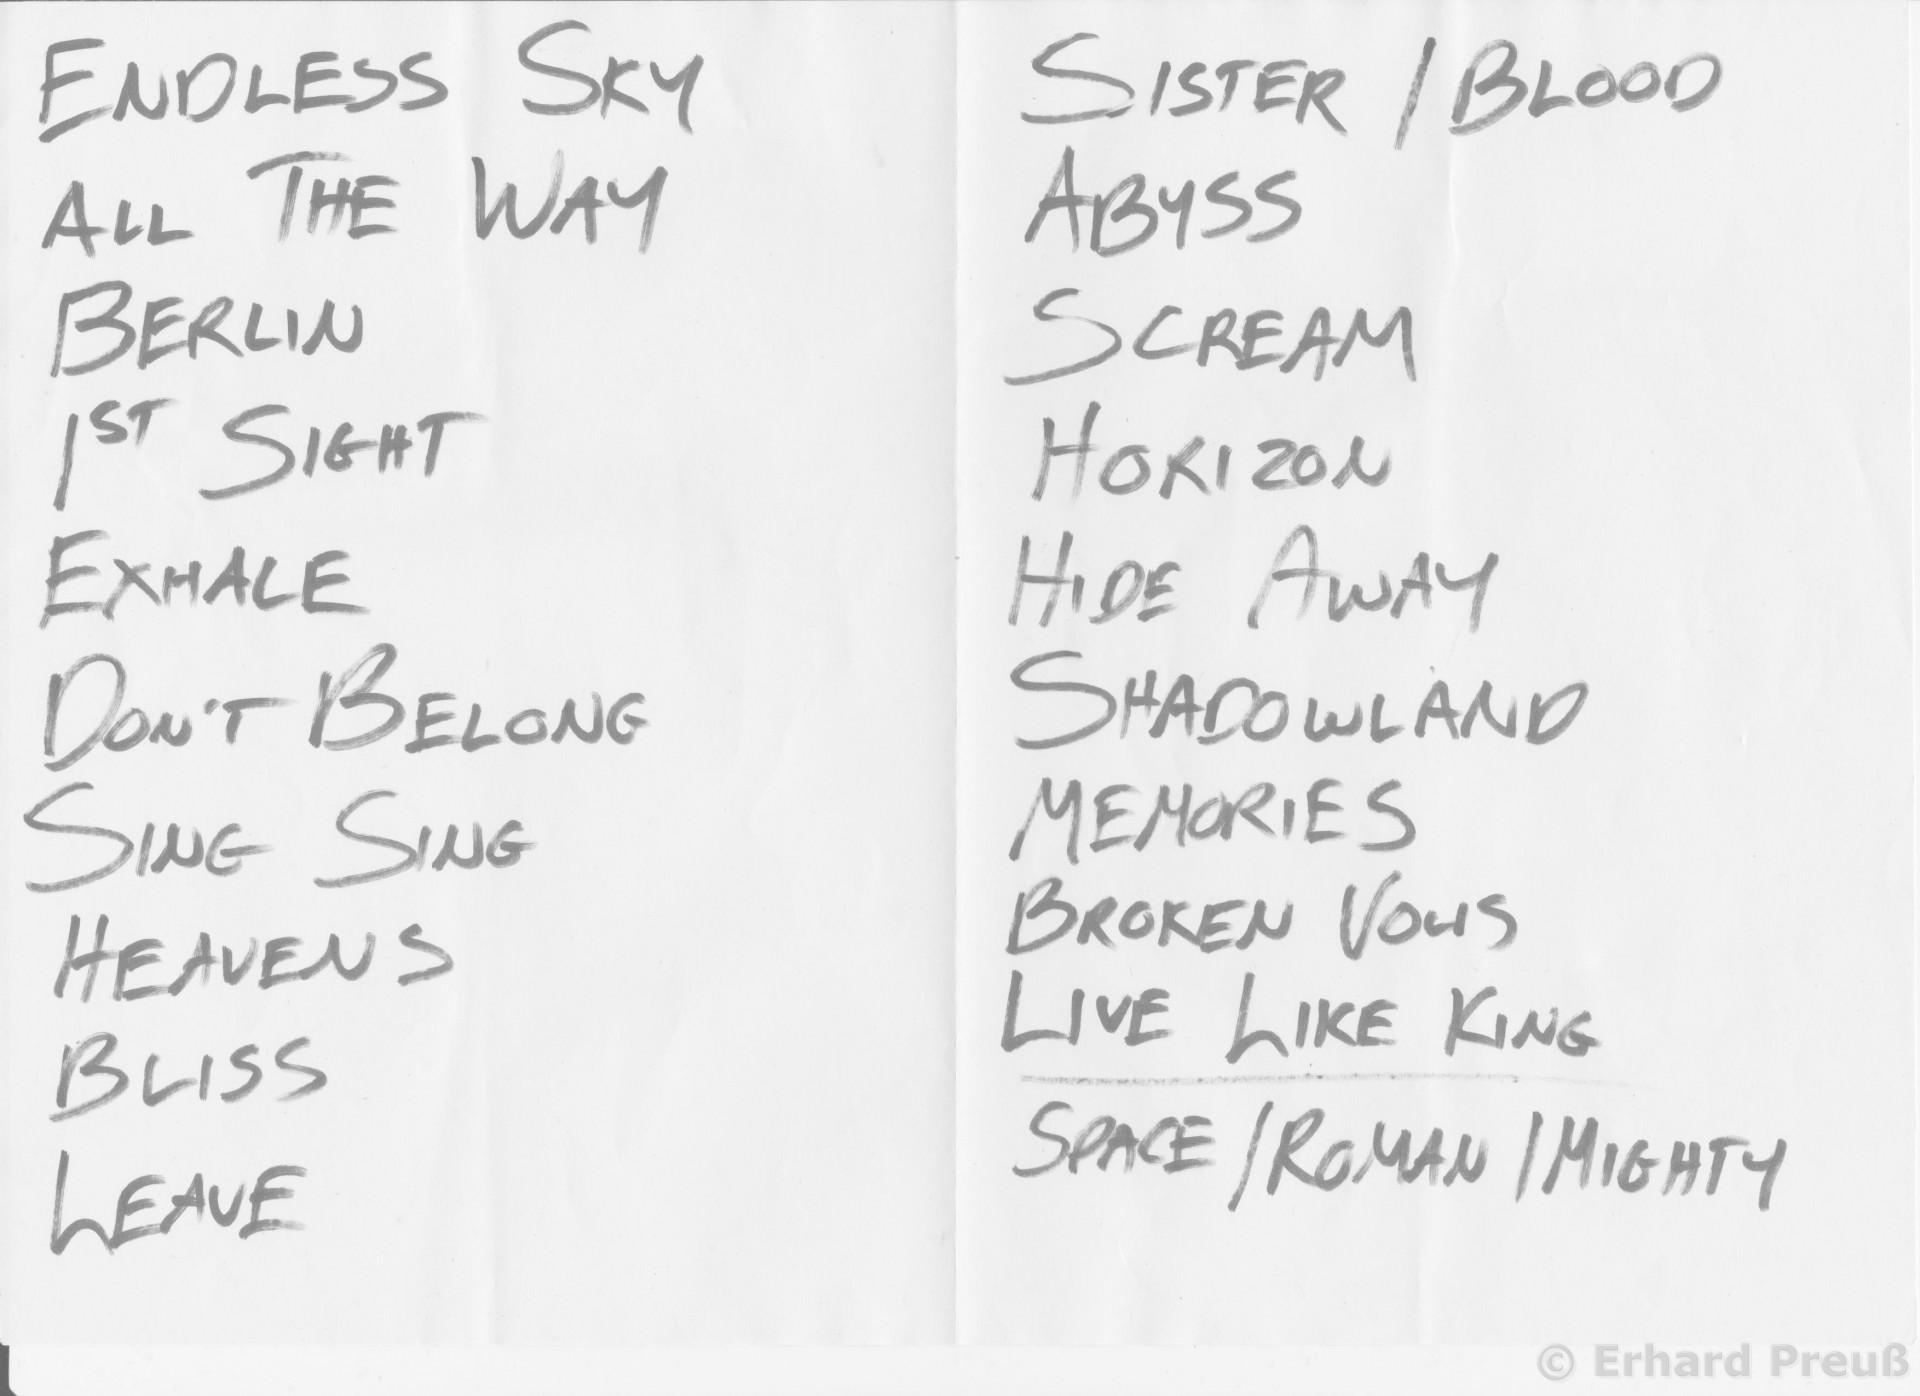 ENDLESS SKY
ALL THE WAY
BERLIN
1ST SIGHT
EXHALE
DON'T BELONG
SING SING
HEAVENS
BLISS
LEAVE
SISTER / BLOOD
ABYSS
SCREAM
HORIZON
HIDE AWAY
SHADOWLAND
MEMORIES
BROKEN VOWS
LIVE LIKE KING
SPACE / ROMAN / MIGHTY
© Erhard Preuß